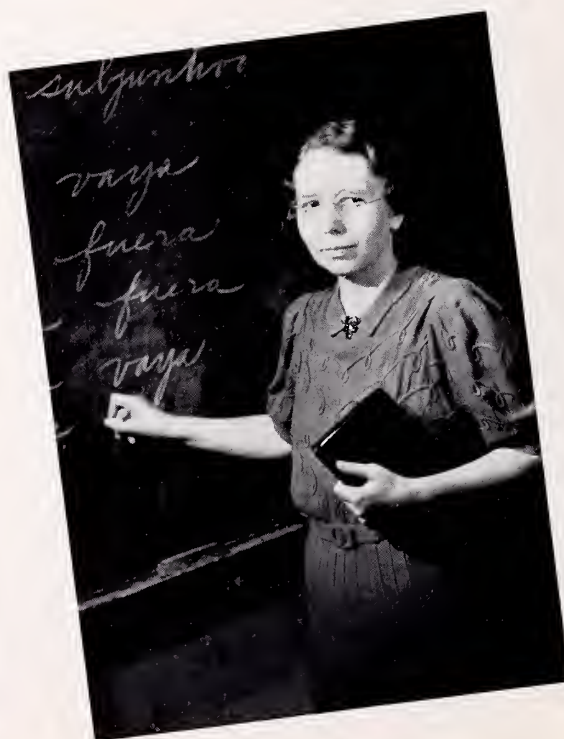 subjuntivo
vaya
fuera
fuera
vaya